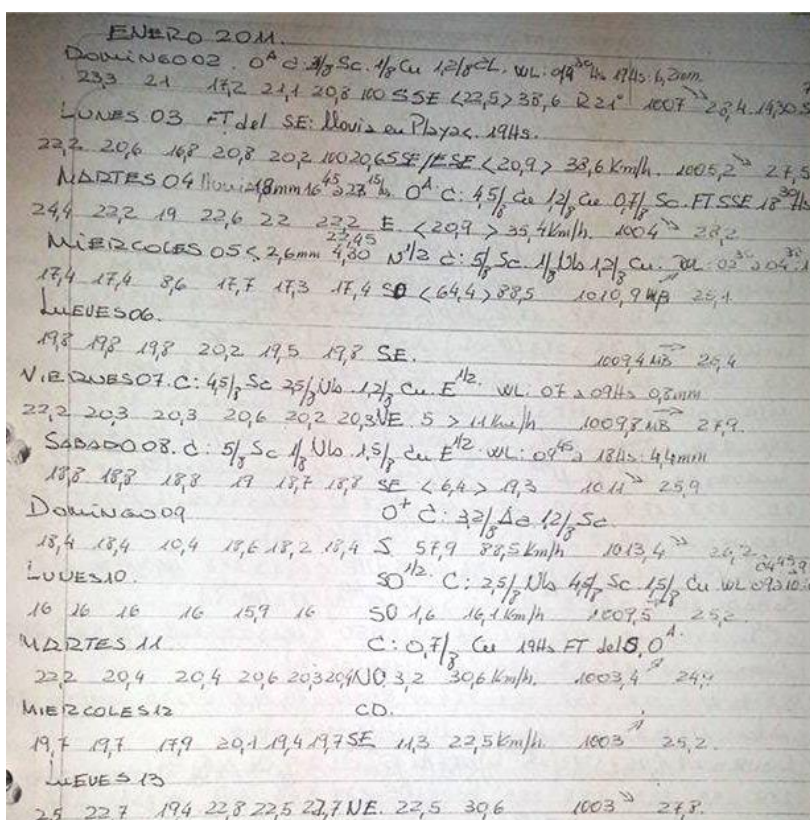 ENERO 2011.
DOMINGO 02. O^A C: 3/8 Sc. 1/8 Cu 1,2/8 CL. WL: 19Hs: 6,2mm.
23,3 21 17,2 21,1 20,8 100 SSE <22,5> 38,6 R21° 1007 ↘ 28,4. 14,30
LUNES 03 FT del SE: lluvia en Playas. 19Hs.
22,2 20,6 16,8 20,8 20,2 100 20,6 SSE/ESE <20,9> 38,6 Km/h. 1005,2 ↘ 27,5
MARTES 04 lluvia 1,8mm 16^45 a 23^15 O^A C: 4,5/8 Cu 1,2/8 Cu 0,7/8 Sc. FT SSE 18^30 Hs
24,4 22,2 19 22,6 22 22,2 E. <20,9> 35,4 Km/h. 1004 ↘ 28,2
22,45
MIERCOLES 05 < 2,6mm 4,30 N^1/2 C: 5/8 Sc. 1/8 Nb 1,2/8 Cu. WL: 02^30 a 04^30
17,4 17,4 8,6 17,7 17,3 17,4 SO <64,4> 88,5 1010,9 MB 25,1
LUEVES 06.
19,8 19,8 19,8 20,2 19,5 19,8 SE. 1009,4 MB → 26,4
VIERNES 07. C: 4,5/8 Sc 2,5/8 Nb 1,2/8 Cu E^1/2. WL: 07 a 09Hs 0,8mm
22,2 20,3 20,3 20,6 20,2 20,3 NE. 5 > 11 Km/h 1009,8 MB → 27,9.
SABADO 08. C: 5/8 Sc 1/8 Nb 1,5/8 Cu E^1/2 WL: 09^45 a 18Hs: 4,4mm
18,8 18,8 18,8 19 18,7 18,8 SE <6,4> 19,3 1011 ↘ 25,9
DOMINGO 09 O^+ C: 3,2/8 Ac 1,2/8 Sc.
18,4 18,4 10,4 18,6 18,2 18,4 S 57,9 88,5 Km/h 1013,4 ↘ 26,2
LUNES 10. SO^1/2. C: 2,5/8 Nb 4,5/8 Sc 1,5/8 Cu WL
16 16 16 16 15,9 16 SO 1,6 16,1 Km/h 1009,5 25,2
MARTES 11 C: 0,7/8 Cu 19Hs FT del S, O^A.
22,2 20,4 20,4 20,6 20,3 20,4 NO 3,2 30,6 Km/h. 1003,4 ↗
MIERCOLES 12 CD.
19,7 19,7 17,9 20,1 19,4 19,7 SE 11,3 22,5 Km/h. 1003 ↗ 25,2.
LUEVES 13
25 22,7 19,4 22,8 22,5 22,7 NE. 22,5 30,6 1003 ↘ 27,8.